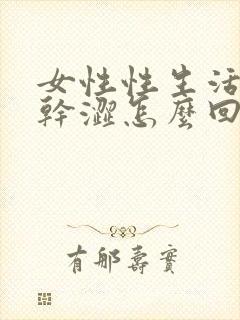 女性性生活
幹澀怎麼回
有那壽實